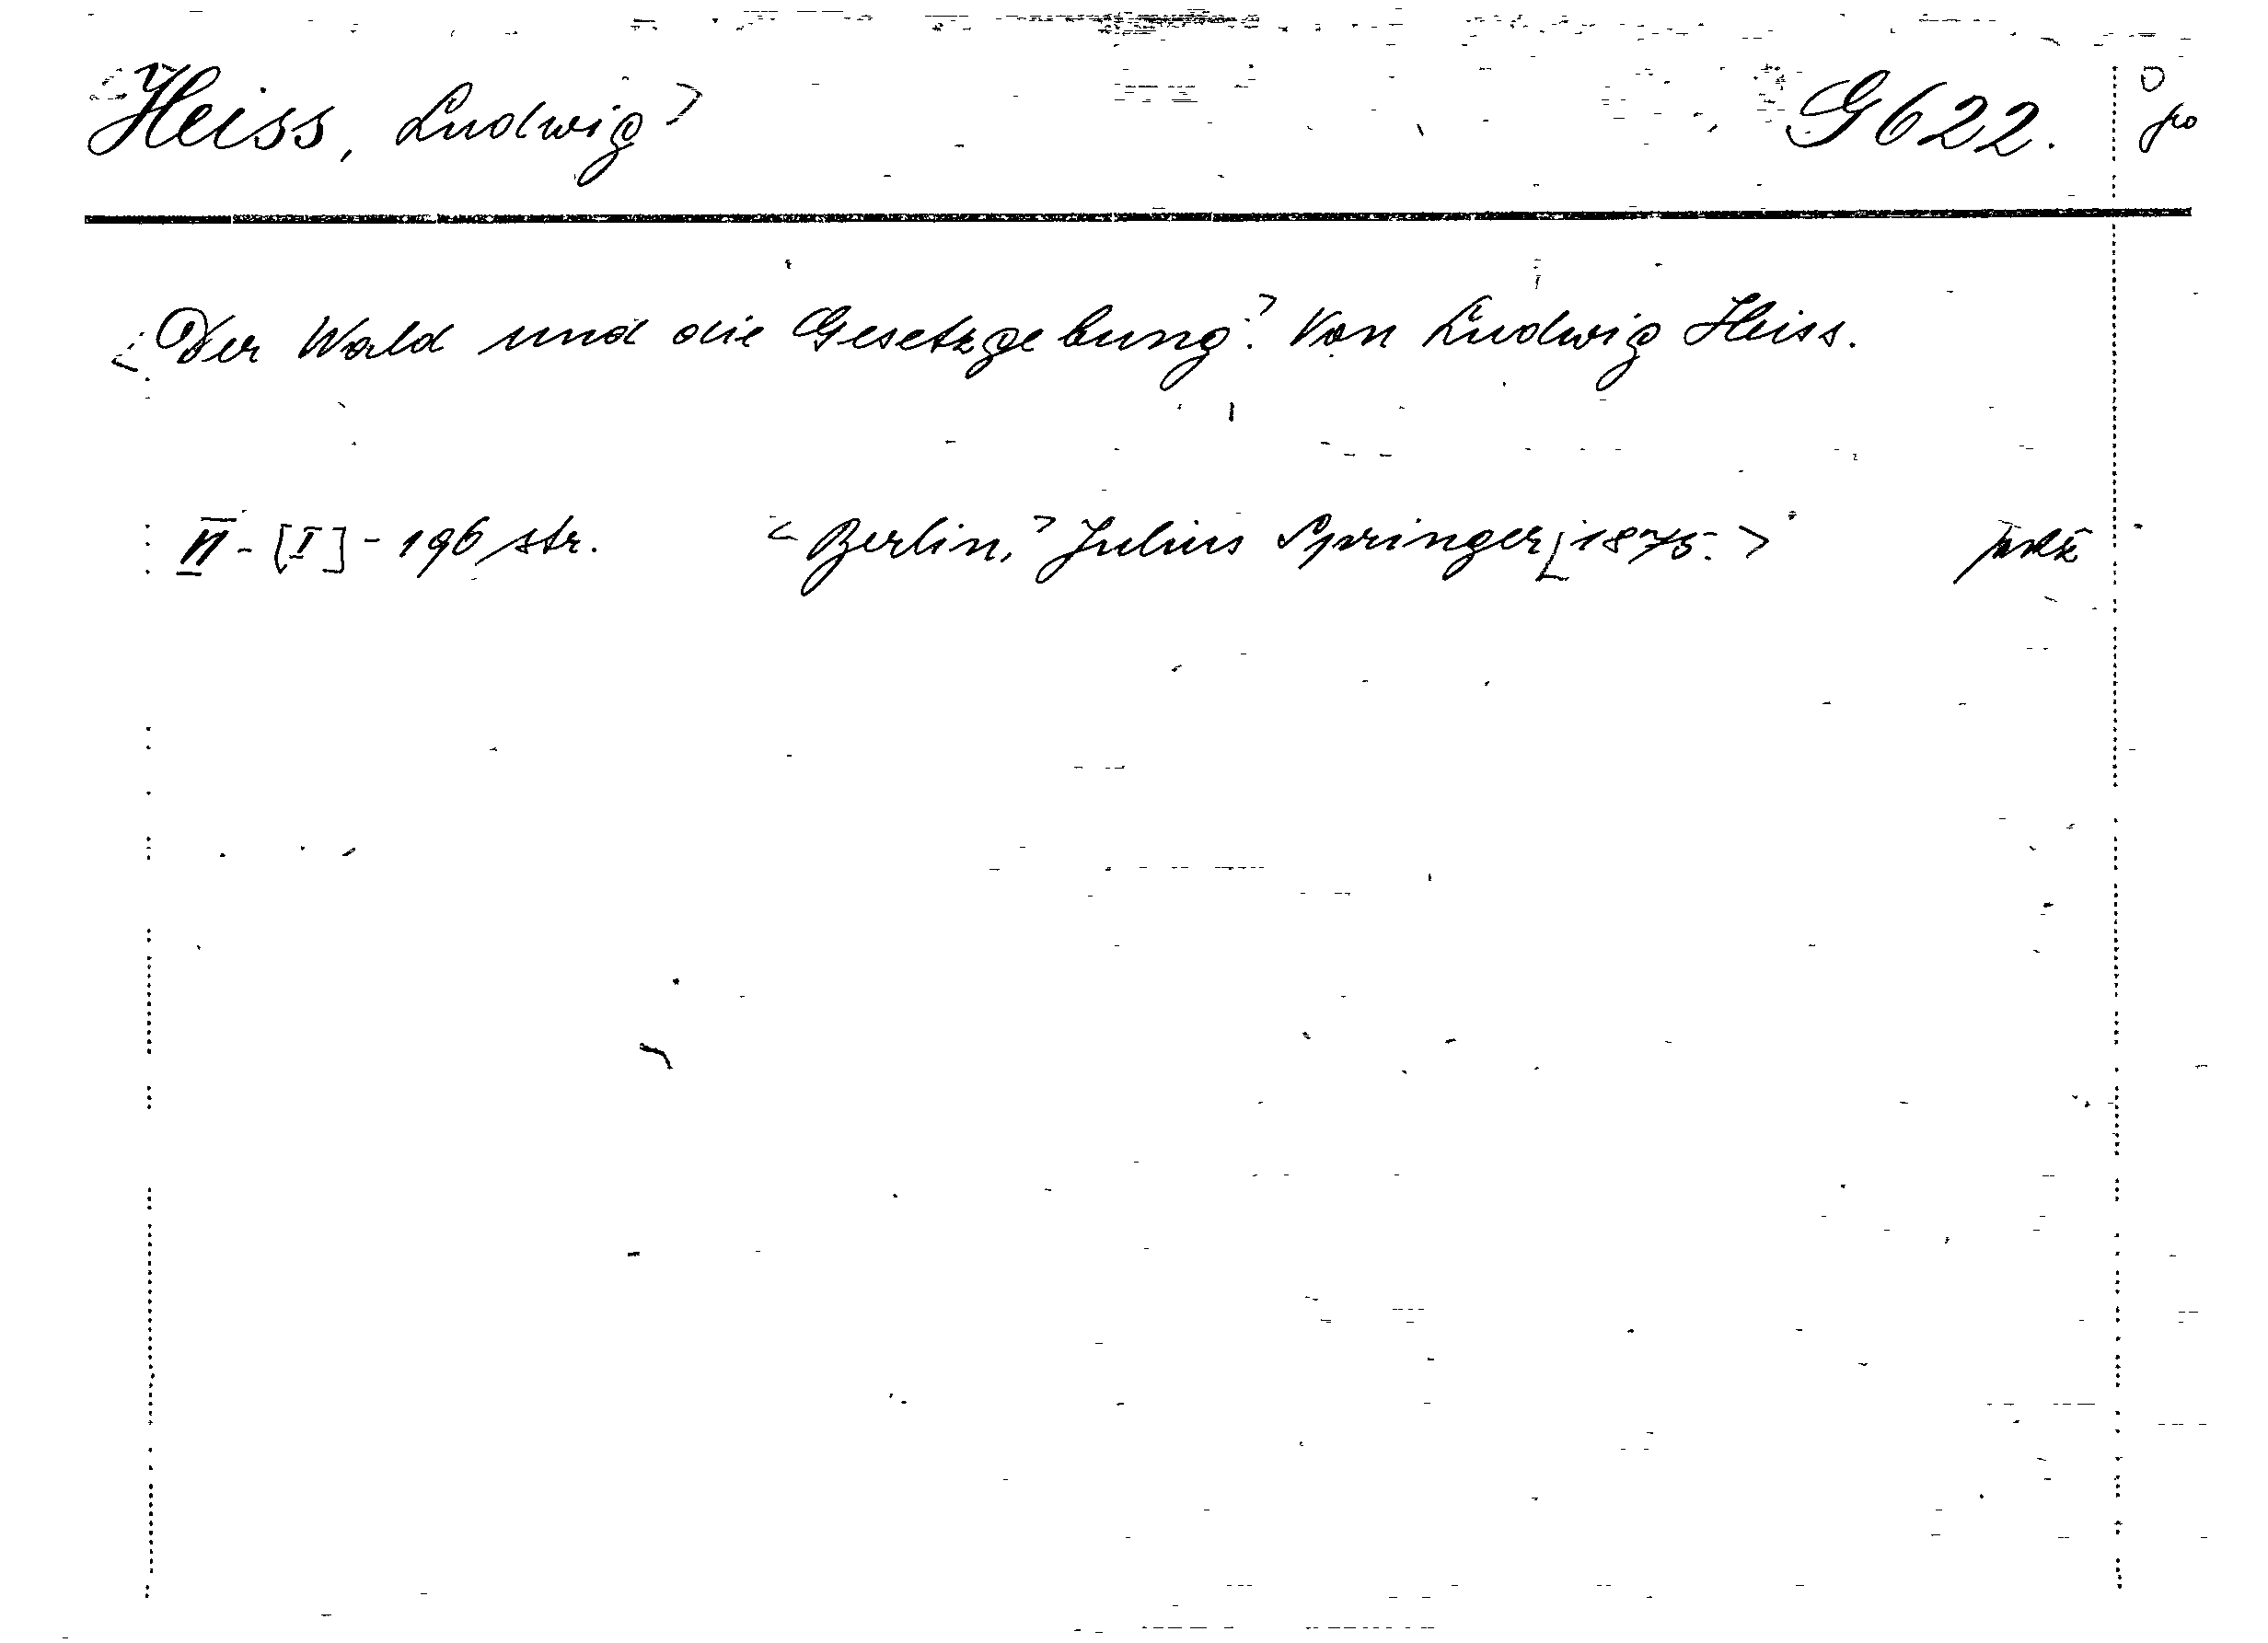 Heiss, Ludwig> G 622.
<Der Wald und die Gesetzgebung.> Von Ludwig Heiss.
VI - [I] - 196 str. <Berlin,> Julius Springer, <1875.>